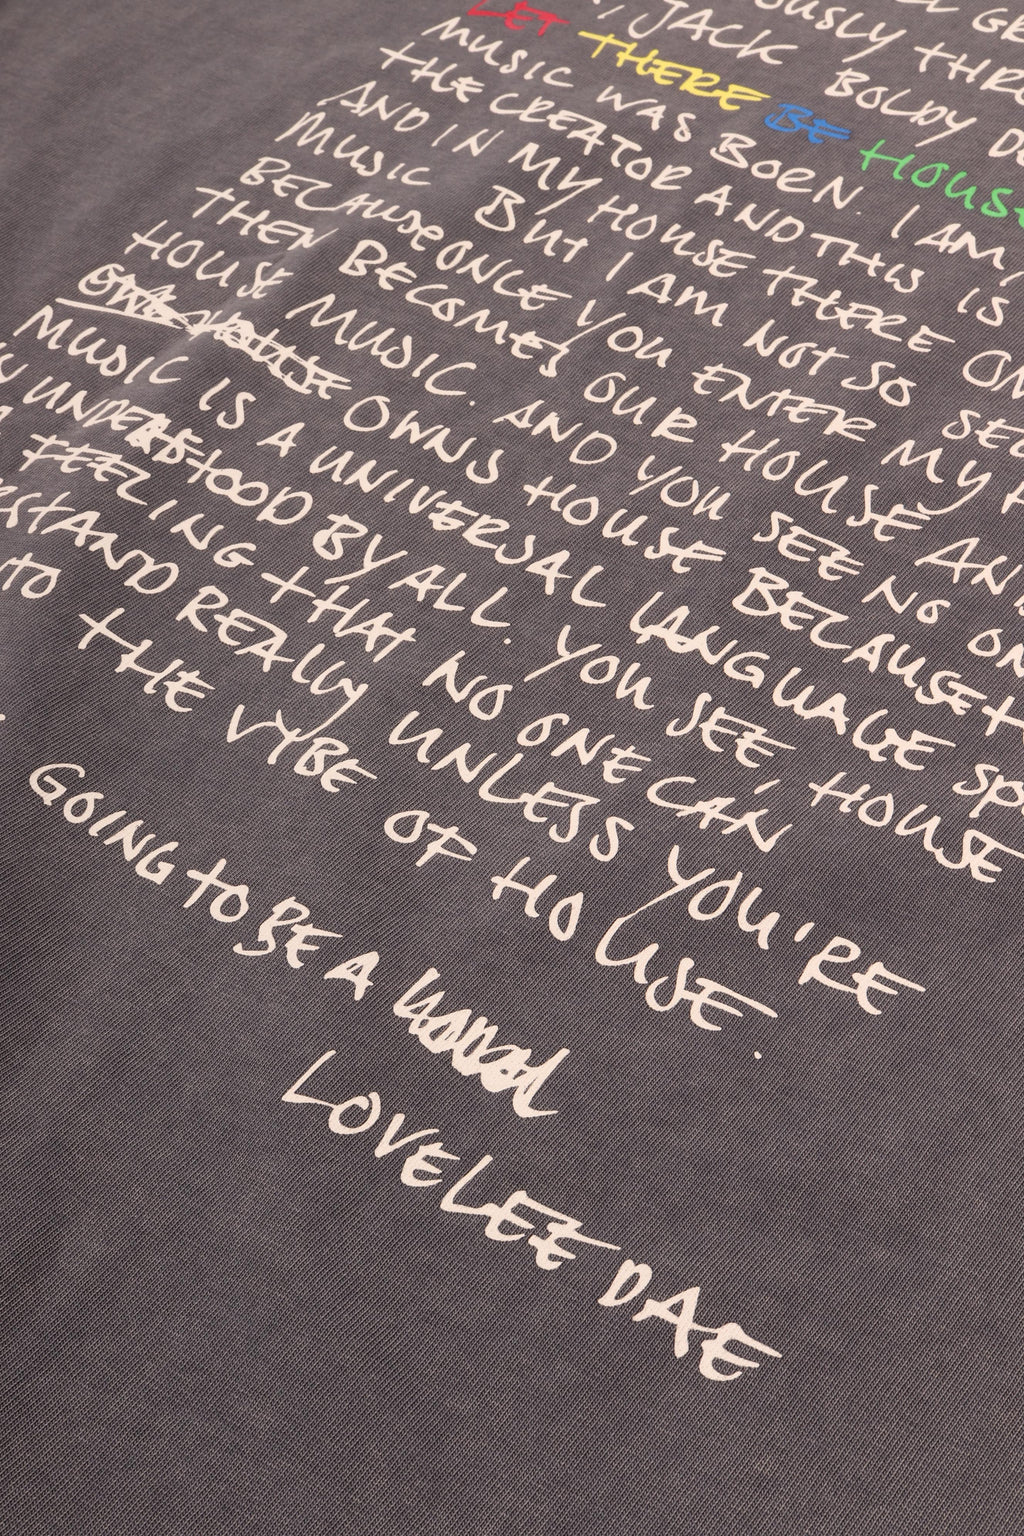 JACK BOLDY
LET THERE BE HOUSE
MUSIC WAS BORN. I AM,
THE CREATOR AND THIS IS
AND IN MY HOUSE THERE ON
MUSIC BUT I AM NOT SO SEL
BECAUSE ONCE YOU ENTER MY H
THEN BECOMES OUR HOUSE AND
HOUSE MUSIC. AND YOU SEE NO ON
OWNS HOUSE BECAUSE
MUSIC IS A UNIVERSAL LANGUAGE SPO
UNDERSTOOD BY ALL. YOU SEE, HOUSE
FEELING THAT NO ONE CAN
RSTAND REALLY UNLESS YOU'RE
TO THE VYBE OF HOUSE.
GOING TO BE A
LOVELEE DAE